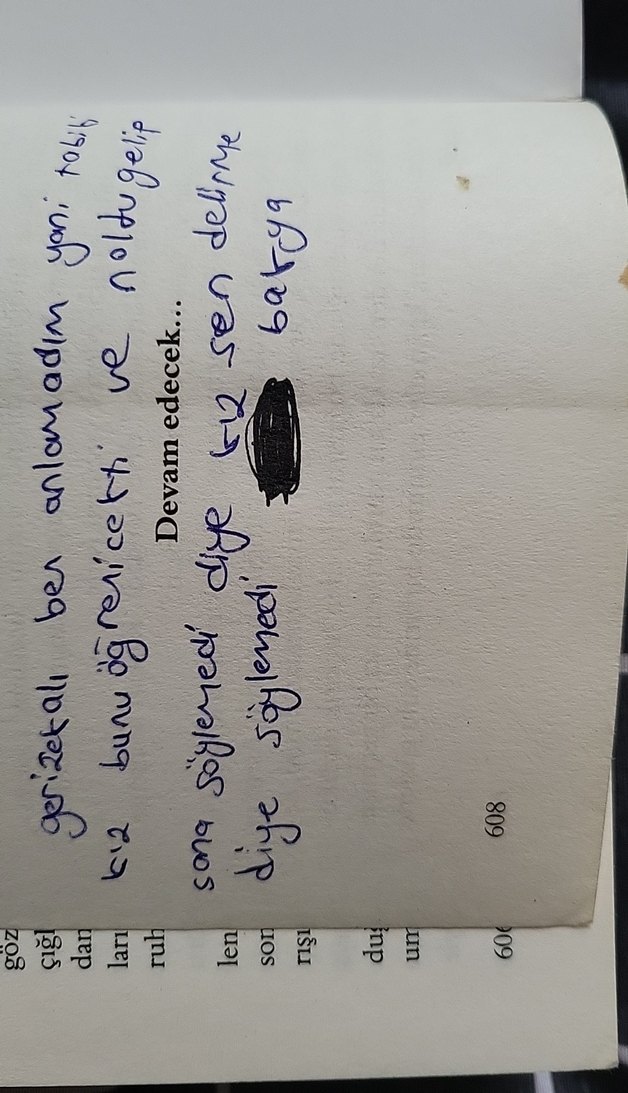 gerizekalı ben anlamadım yani tabiki
kız bunu öğrenicekti ve noldugelip
Devam edecek...
sana söylemedi diye kız sen delirme
diye söylemedi bakya
608
göz
çığl
dan
ları
ruh
len
son
rışı
duğ
um